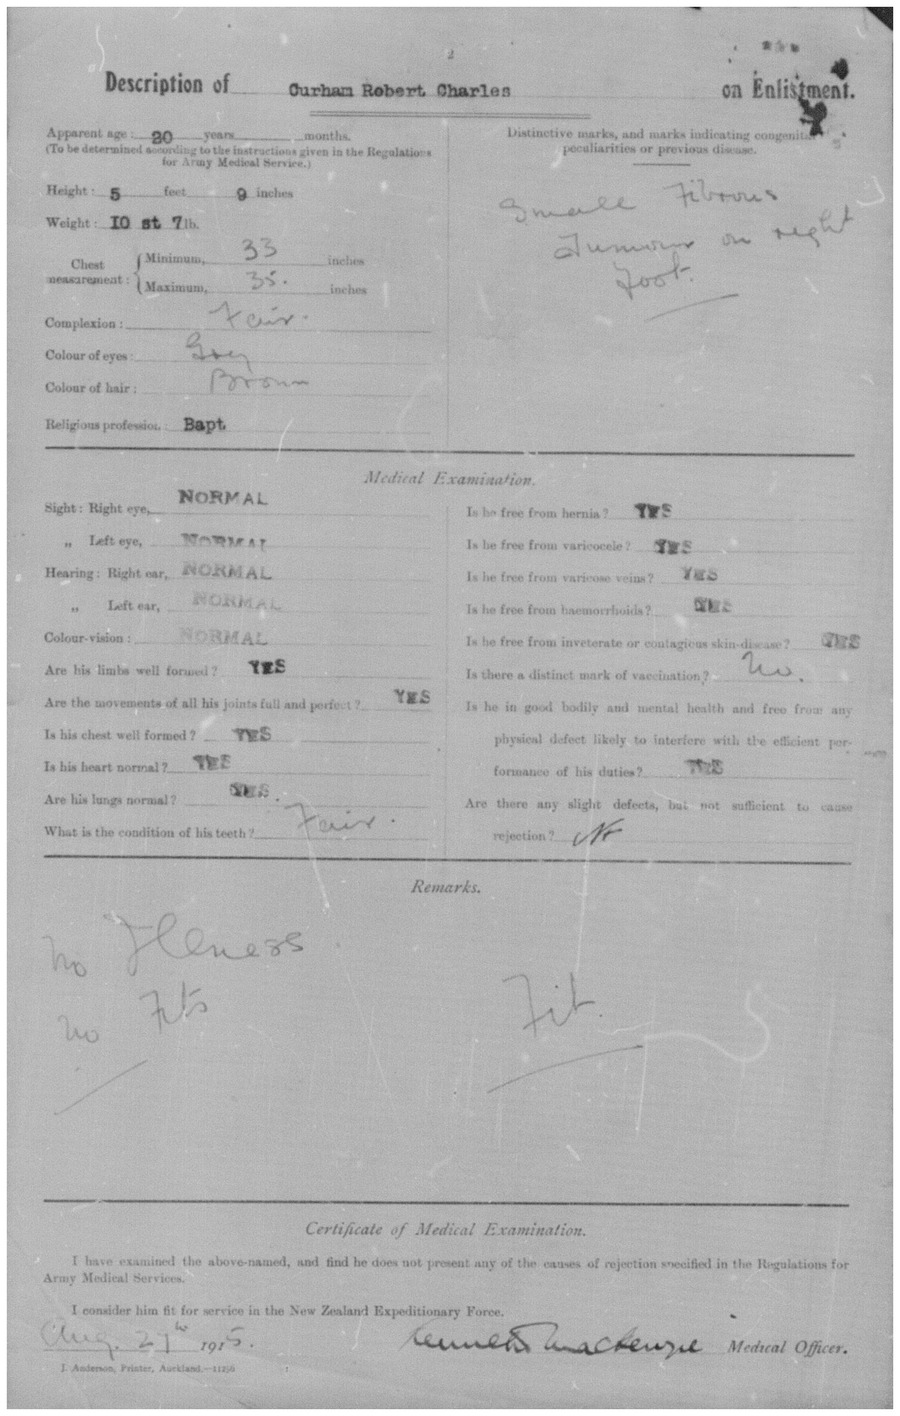 2
Description of Curham Robert Charles on Enlistment.
Apparent age: 20 years months.
(To be determined according to the instructions given in the Regulations
for Army Medical Service.)
Height: 5 feet 9 inches
Weight: 10 st 7 lb.
Chest measurement: Minimum, 33 inches
Maximum, 35. inches
Complexion: Fair.
Colour of eyes: Grey
Colour of hair: Brown
Religious profession: Bapt
Distinctive marks, and marks indicating congenital
peculiarities or previous disease.
Small Fibrous
Tumour on right
Foot.
Medical Examination.
Sight: Right eye, NORMAL
„ Left eye, NORMAL
Hearing: Right ear, NORMAL
„ Left ear, NORMAL
Colour-vision: NORMAL
Are his limbs well formed? YES
Are the movements of all his joints full and perfect? YES
Is his chest well formed? YES
Is his heart normal? YES
Are his lungs normal? YES.
What is the condition of his teeth? Fair.
Is he free from hernia? YES
Is he free from varicocele? YES
Is he free from varicose veins? YES
Is he free from haemorrhoids? YES
Is he free from inveterate or contagious skin-disease? YES
Is there a distinct mark of vaccination? No.
Is he in good bodily and mental health and free from any
physical defect likely to interfere with the efficient per-
formance of his duties? YES
Are there any slight defects, but not sufficient to cause
rejection? No
Remarks.
No Illness
No Fits
Fit.
Certificate of Medical Examination.
I have examined the above-named, and find he does not present any of the causes of rejection specified in the Regulations for
Army Medical Services.
I consider him fit for service in the New Zealand Expeditionary Force.
Aug. 1915. Kenneth Mackenzie Medical Officer.
J. Anderson, Printer, Auckland.—11256